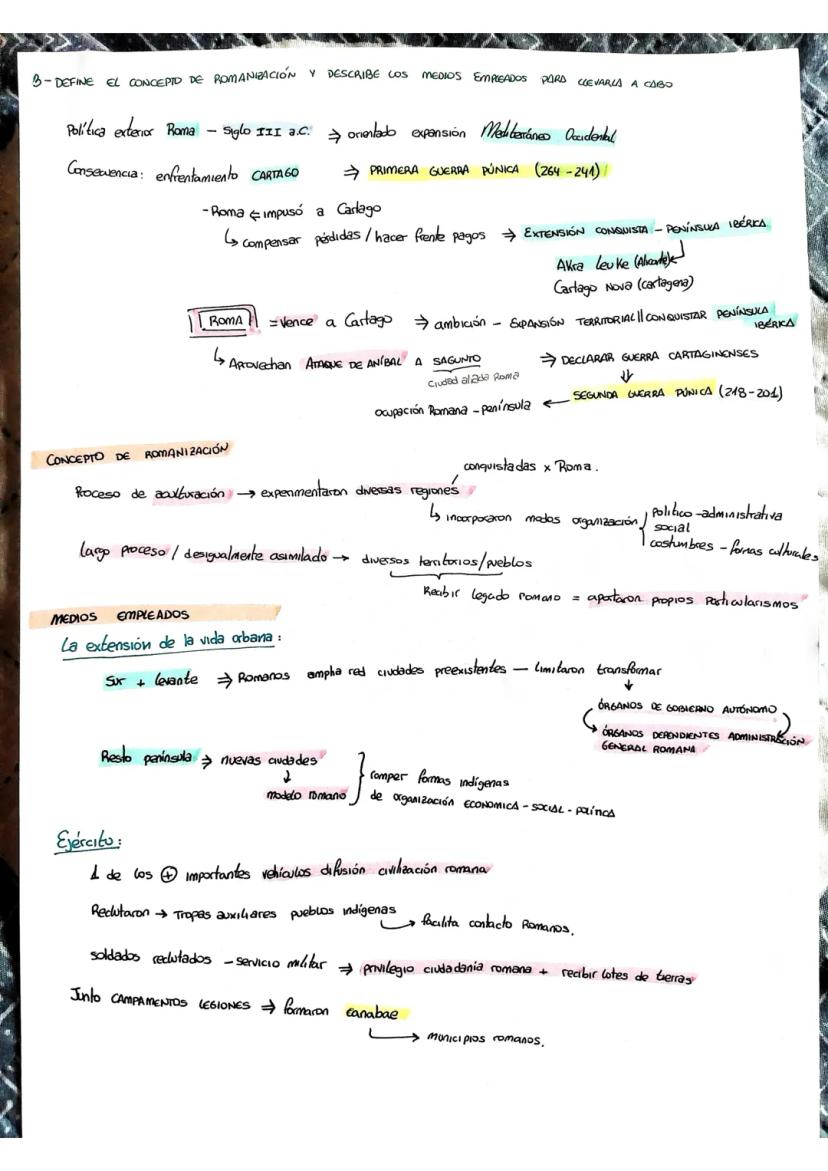 3- DEFINE EL CONCEPTO DE ROMANIZACIÓN Y DESCRIBE LOS MEDIOS EMPLEADOS PARA LLEVARLA A CABO
Política exterior Roma - Siglo III a.C. ⇒ orientado expansión Mediterráneo Occidental
Consecuencia: enfrentamiento CARTAGO ⇒ PRIMERA GUERRA PÚNICA (264-241)
- Roma ⇐ impusó a Cartago
↳ compensar pérdidas / hacer frente pagos ⇒ EXTENSIÓN CONQUISTA - PENÍNSULA IBÉRICA
Akra Leuke (Alicante)
Cartago Nova (cartagena)
ROMA = Vence a Cartago ⇒ ambición - EXPANSIÓN TERRITORIAL || CONQUISTAR PENÍNSULA
IBÉRICA
↳ Aprovechan ATAQUE DE ANÍBAL A SAGUNTO ⇒ DECLARAR GUERRA CARTAGINENSES
Ciudad aliada Roma
SEGUNDA GUERRA PÚNICA (218-201)
ocupación Romana - península ←
CONCEPTO DE ROMANIZACIÓN
conquistadas x Roma.
Proceso de aculturación → experimentaron diversas regiones
↳ incorporaron modos organización
político-administrativa
social
costumbres - formas culturales
Largo proceso / desigualmente asimilado → diversos territorios/pueblos
Recibir legado romano = aportaron propios particularismos
MEDIOS EMPLEADOS
La extensión de la vida urbana:
Sur + levante ⇒ Romanos amplia red ciudades preexistentes — limitaron transformar
ÓRGANOS DE GOBIERNO AUTÓNOMO
ÓRGANOS DEPENDIENTES ADMINISTRACIÓN
GENERAL ROMANA
Resto península ⇒ nuevas ciudades
modelo romano
romper formas indígenas
de organización ECONOMICA - SOCIAL - POLÍTICA
Ejército:
1 de los ⊕ importantes vehículos difusión civilización romana
Reclutaron → Tropas auxiliares pueblos indígenas
→ facilita contacto Romanos.
soldados reclutados - servicio militar ⇒ privilegio ciudadanía romana + recibir lotes de tierras
Junto CAMPAMENTOS LEGIONES ⇒ formaron canabae
→ municipios romanos.